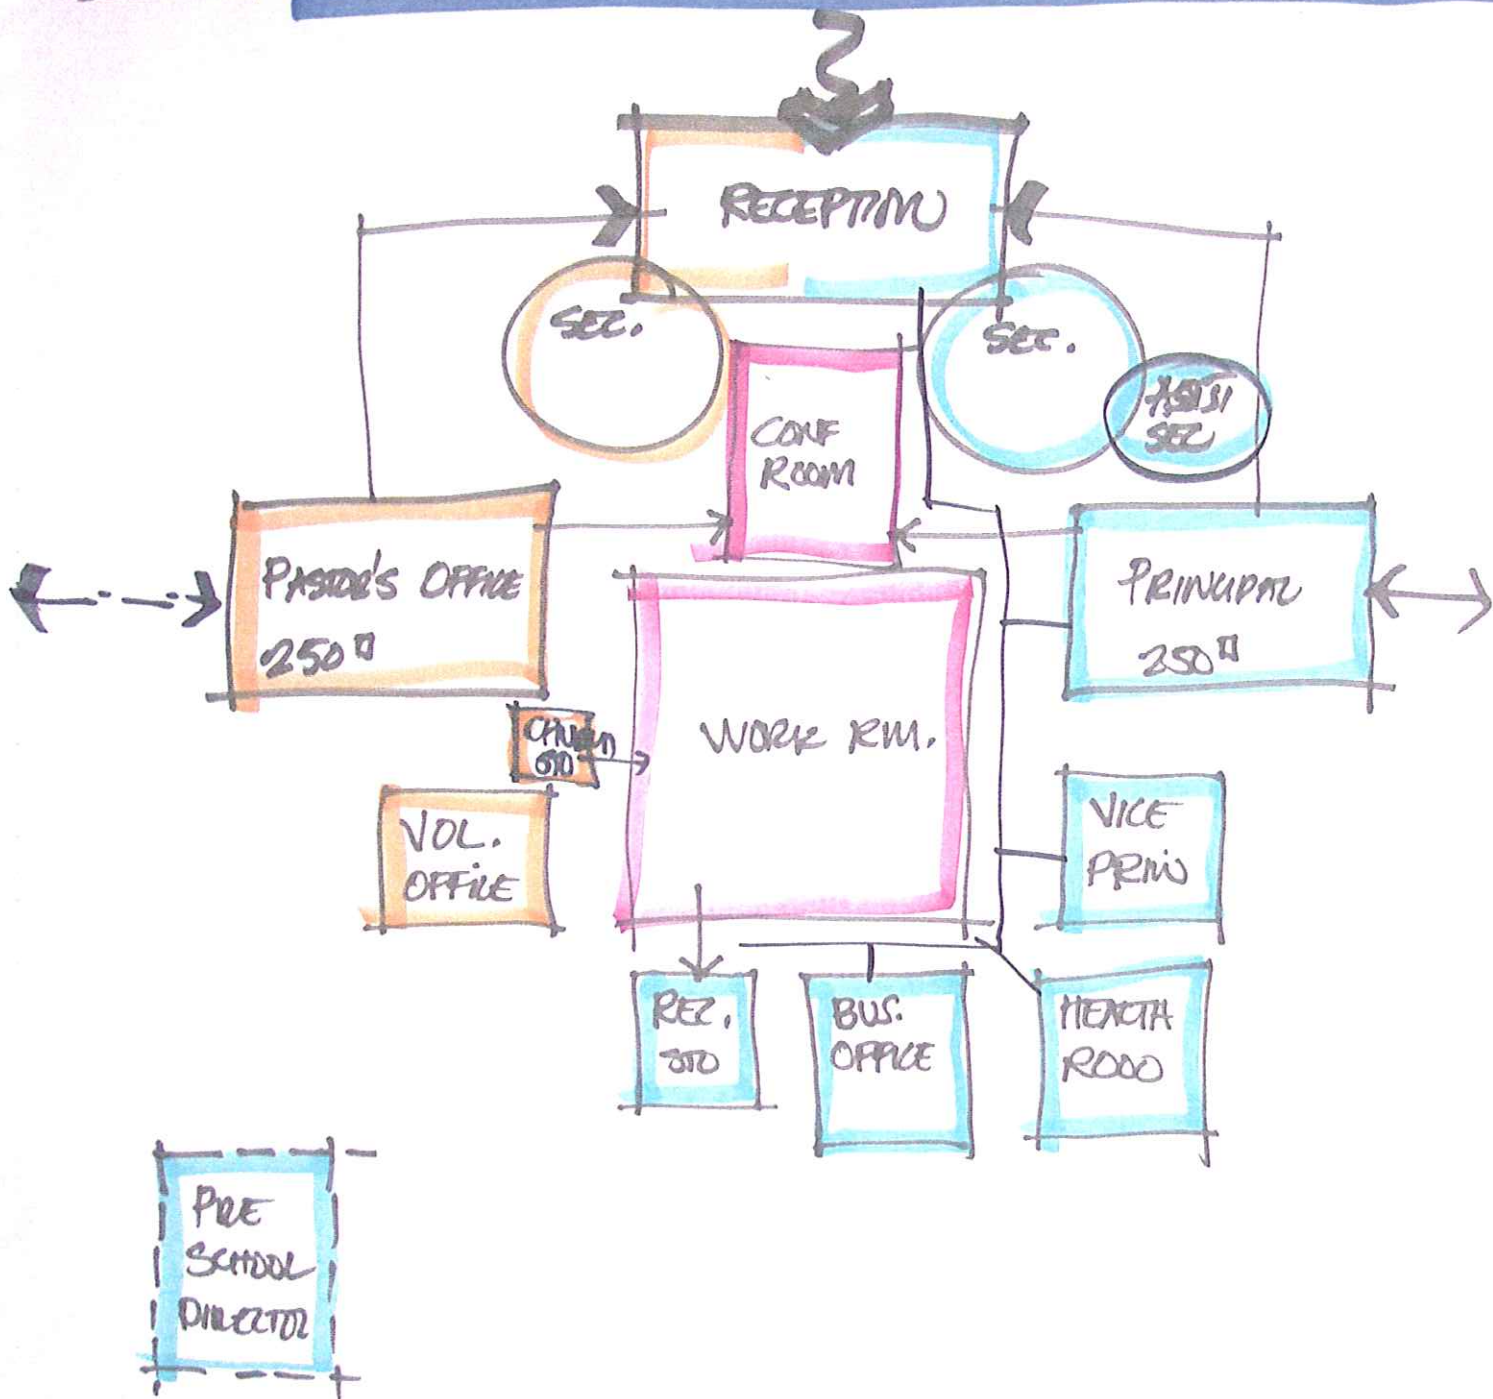 RECEPTION
SEC.
SEC.
ASIST
SEC
CONF
ROOM
PASTOR'S OFFICE
250
PRINCIPAL
250
CHURCH
STO
WORK RM.
VOL.
OFFICE
VICE
PRIN
REC.
STO
BUS.
OFFICE
HEALTH
ROOO
PRE
SCHOOL
DIRECTOR